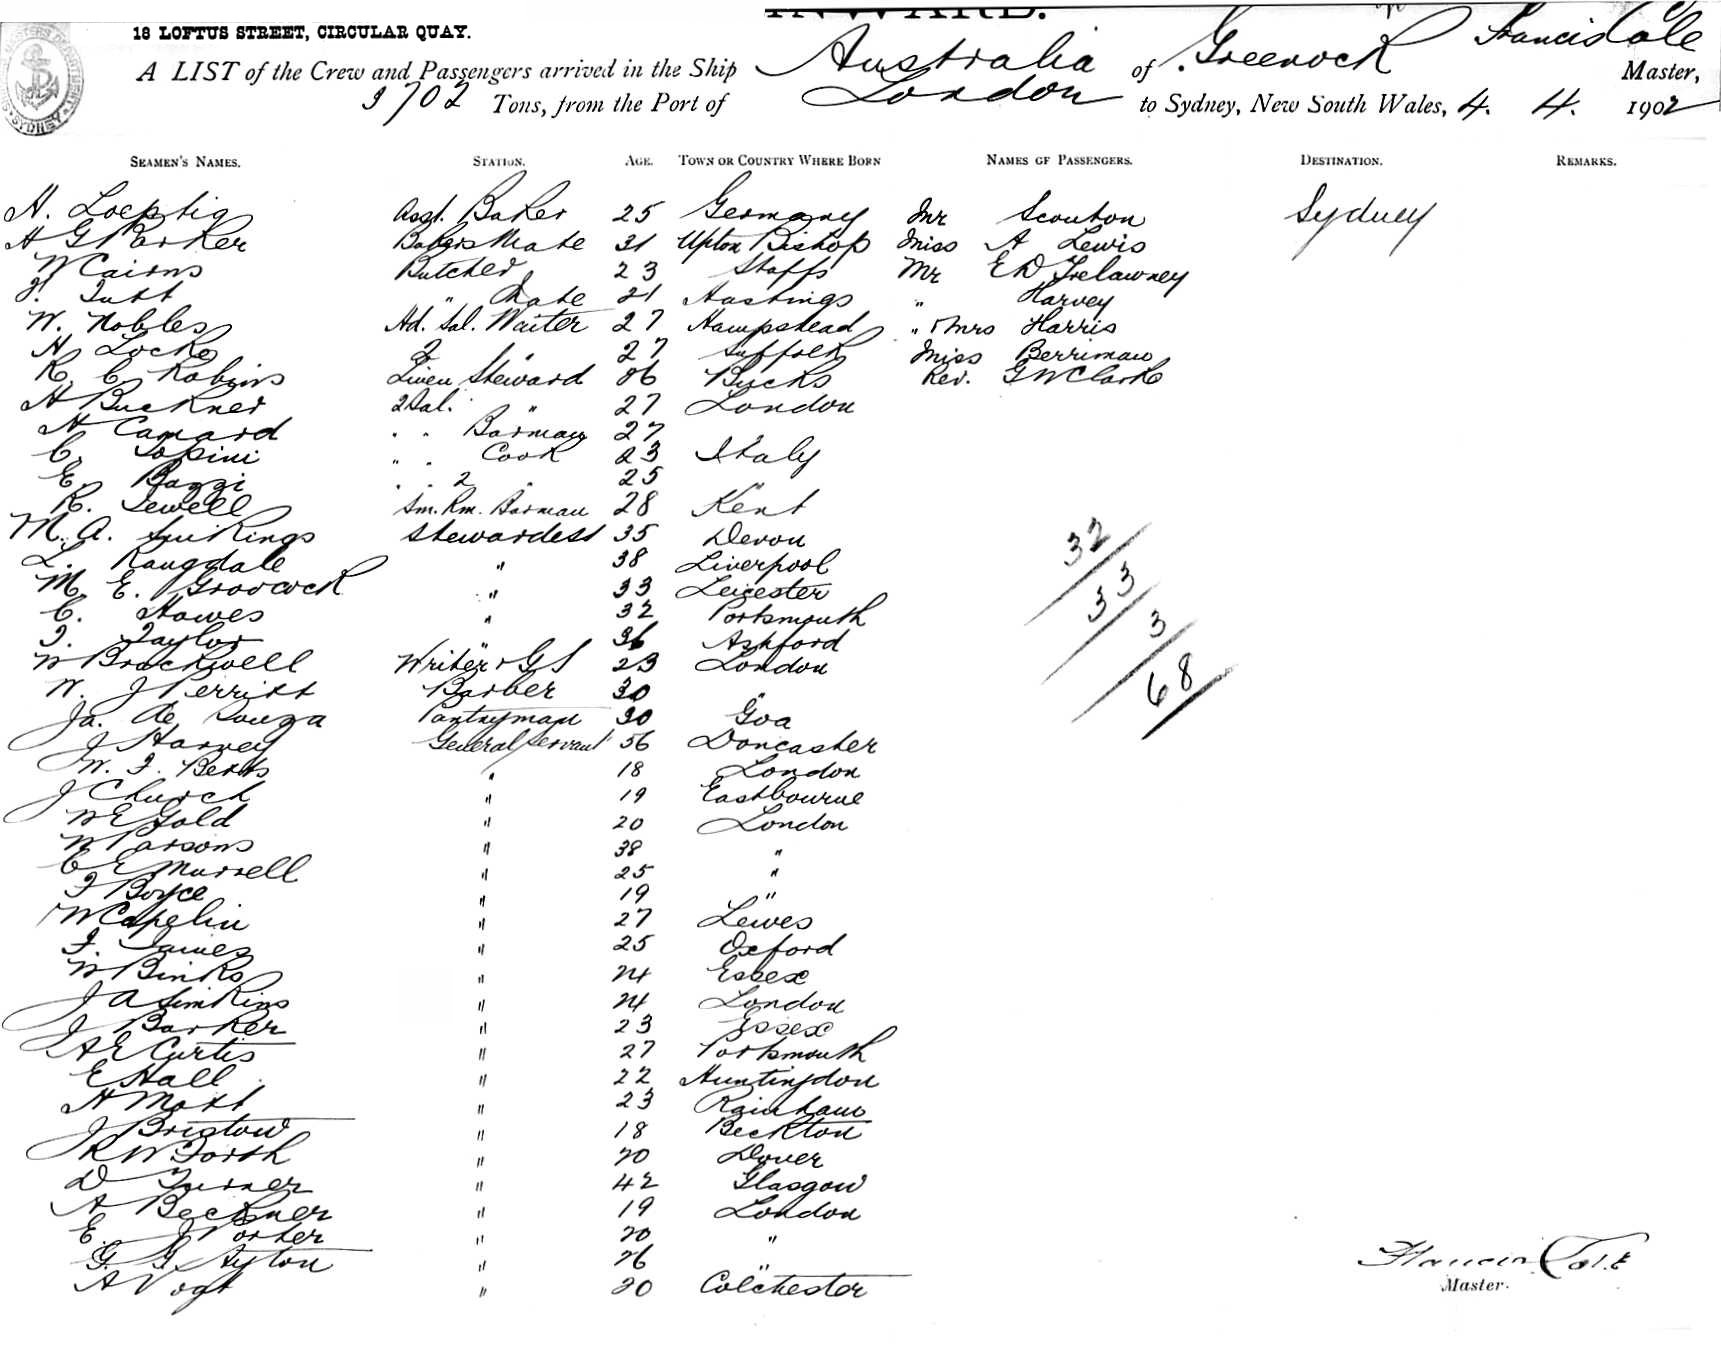 INWARD.
18 LOFTUS STREET, CIRCULAR QUAY.
A LIST of the Crew and Passengers arrived in the Ship Australia of Greenock Francis Cole Master,
3702 Tons, from the Port of London to Sydney, New South Wales, 4. 4. 1902
SEAMEN'S NAMES. STATION. AGE. TOWN OR COUNTRY WHERE BORN NAMES OF PASSENGERS. DESTINATION. REMARKS.
H. Loeptig Asst. Baker 25 Germany Mr Scouton Sydney
H G Parker Baker's Mate 31 Upton Bishop Miss A Lewis
W Cairns Butcher 23 Staffs Mr E D Trelawney
F. Tutt " Mate 21 Hastings " Harvey
W. Nobles Hd. Sal. Waiter 27 Hampstead " & Mrs Harris
H Locke 2 " 27 Suffolk Miss Berriman
R. C Robins Linen Steward 26 Bucks Rev. G W Clarke
A Buckner 2 Sal. " 27 London
H Camard " " Barman 27
C. Topini " " Cook 23 Italy
E. Bazzi " " 2 " 25 "
R. Jewell Sm. Rm. Barman 28 Kent
M. A. Simkings Stewardess 35 Devon
L. Rangdale " 38 Liverpool
M. E. Groocock " 33 Leicester
C. Howes " 32 Portsmouth
F. Taylor " 36 Ashford
W Brockwell Writer & G S 23 London
W. J Perritt Barber 30 "
Ja. de Souza Pantryman 30 Goa
J Harvey General Servant 56 Doncaster
W. F. Betts " 18 London
J Church " 19 Eastbourne
W E Gold " 20 London
W Parsons " 38 "
C E Murrell " 25 "
F Boyce " 19 "
W Capelin " 27 Lewes
F. James " 25 Oxford
W Binks " 24 Essex
J A Simkins " 24 London
J Barker " 23 Essex
A E Curtis " 27 Portsmouth
E Hall " 22 Huntingdon
H Mott " 23 Rainham
J Bristow " 18 Beckton
R W Forth " 20 Dover
D Turner " 42 Glasgow
A Beckner " 19 London
E. J Porter " 20 "
G. G. Ayton " 26 "
A Vogt " 20 Colchester
32
33
3
68
Francis Cole
Master.